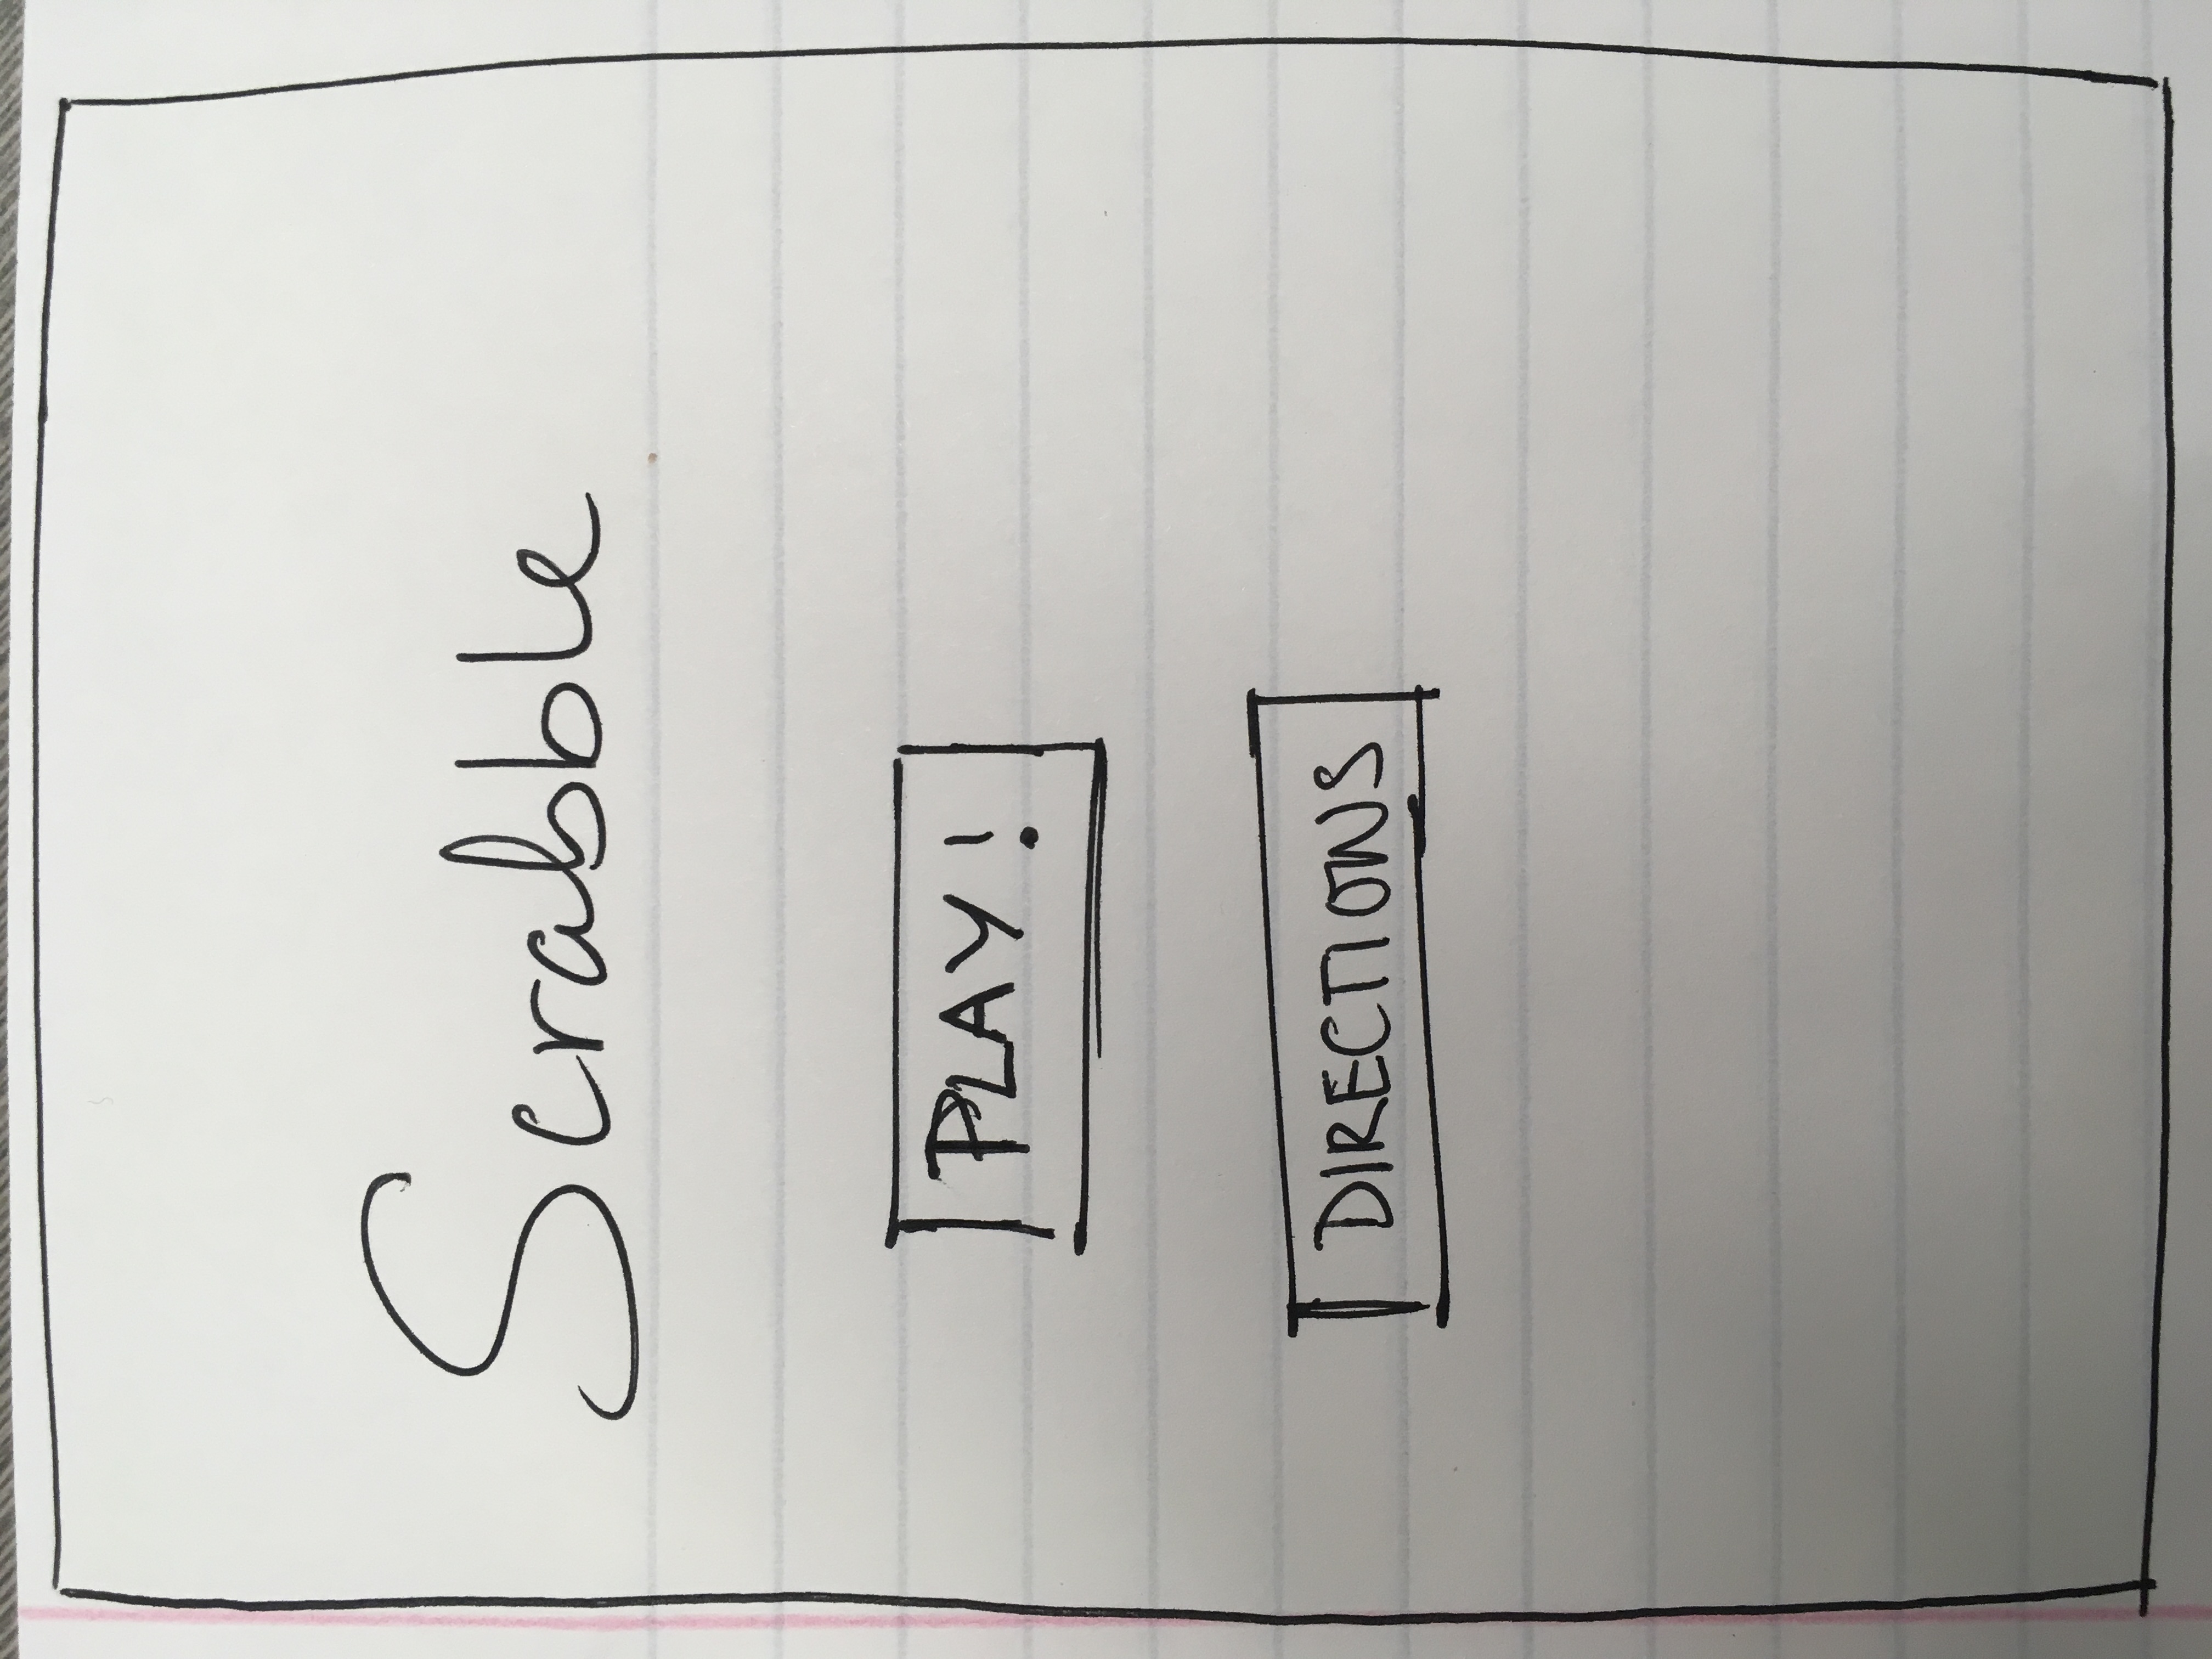 Scrabble
PLAY!
DIRECTIONS